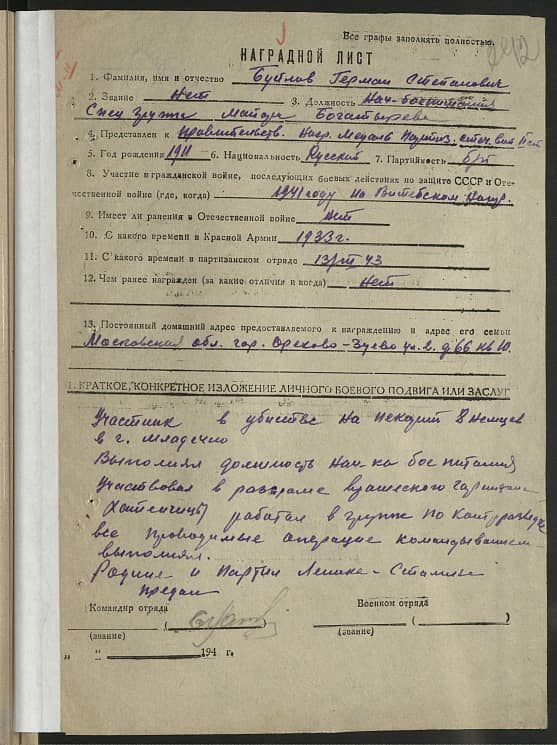 Все графы заполнять полностью.
НАГРАДНОЙ ЛИСТ
1. Фамилия, имя и отчество Герман Степанович
2. Звание Нет 3. Должность Нач-боепитания
Спец Группы Майора Богатырева
4. Представлен к Правительств. Нагр. Медаль Партиз. отеч. вой II ст
5. Год рождения 1911 6. Национальность Русский 7. Партийность б/п
8. Участие в гражданской войне, последующих боевых действиях по защите СССР и Оте-
чественной войне (где, когда) 1941 году на Витебском Напр.
9. Имеет ли ранения в Отечественной войне нет
10. С какого времени в Красной Армии 1933 г.
11. С какого времени в партизанском отряде 13/III 43
12. Чем ранее награжден (за какие отличия и когда) Нет
13. Постоянный домашний адрес предоставляемого к награждению и адрес его семьи
Московская обл. гор. Орехово-Зуево ул. 2. д 66 кв 10.
1. КРАТКОЕ, КОНКРЕТНОЕ ИЗЛОЖЕНИЕ ЛИЧНОГО БОЕВОГО ПОДВИГА ИЛИ ЗАСЛУГ
Участник в убистве на 8 немцев
в г. Младечно
Выполнял должность Нач-ка боепитания
Участвовал в разгроме вражеского гарнизона
работал в группе по контрразведке
все проводимые операцие командыванием
выполнял.
Родине и Партии Ленина-Сталина
предан
Командир отряда Военком отряда
(звание) (звание)
" " 194 г.